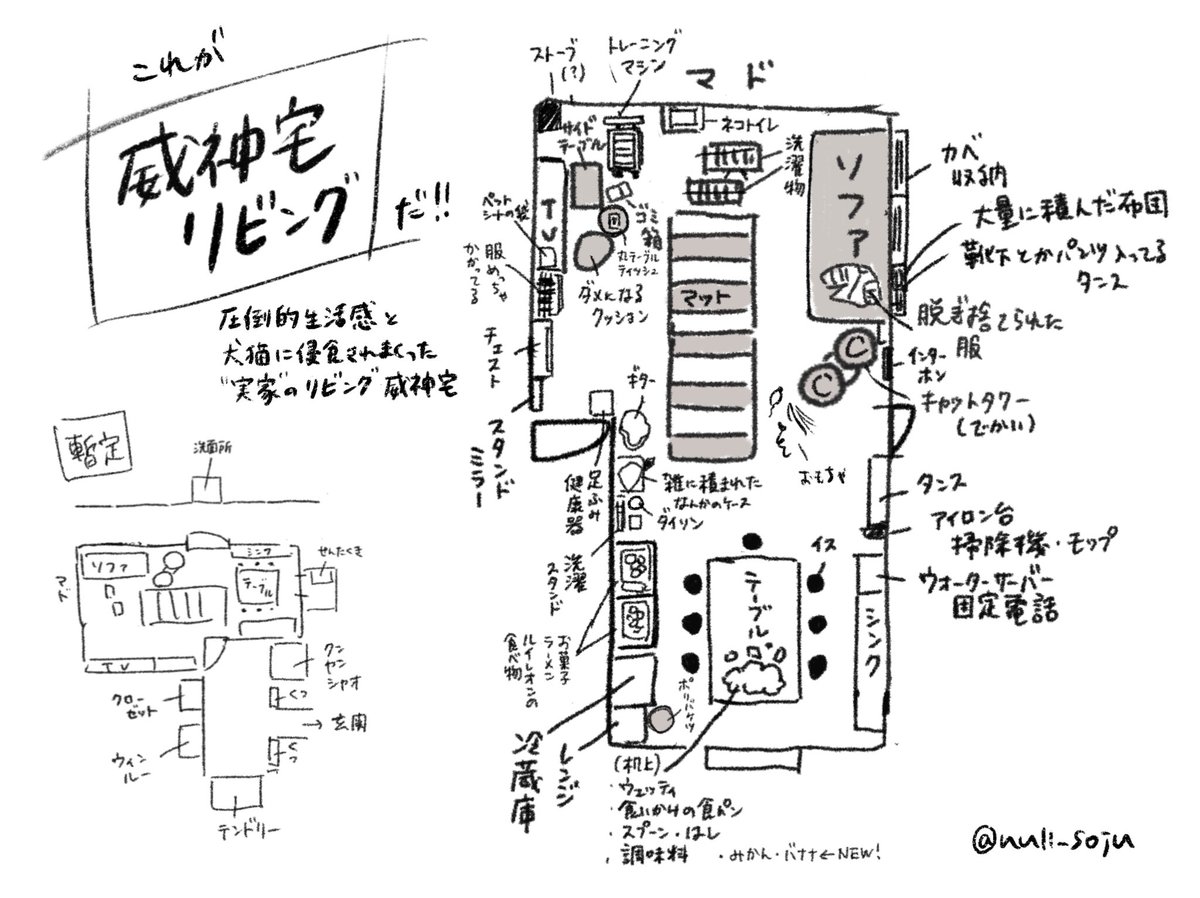 これが
威神宅
リビング
だ!!
圧倒的生活感と
犬猫に侵食されまくった
"実家"のリビング威神宅
ストーブ
(?)
トレーニング
マシン
マド
サイド
テーブル
ネコトイレ
洗濯物
ソファ
カベ
収納
大量に積んだ布団
靴下とかパンツ入ってる
タンス
脱ぎ捨てられた
服
インター
ホン
キャットタワー
(でかい)
C
C
TV
ペット
シートの袋
服めっちゃ
かかってる
ゴミ箱
丸テーブル
ティッシュ
ダメになる
クッション
マット
チェスト
スタンド
ミラー
ギター
おもちゃ
足ふみ
健康器
雑に積まれた
なんかのケース
ダイソン
洗濯
スタンド
タンス
アイロン台
掃除機・モップ
ウォーターサーバー
固定電話
イス
テーブル
シンク
お菓子
ラーメン
ルイレオンの
食べ物
冷蔵庫
レンジ
ポリバケツ
(机上)
・ウェッティ
・食いかけの食パン
・スプーン・はし
・調味料 ・みかん・バナナ←NEW!
暫定
洗面所
ソファ
マド
シンク
テーブル
せんたくき
TV
クンヤンシャオ
クローゼット
くつ
→玄関
ウィンルー
くつ
テンドリー
@nuli_soju